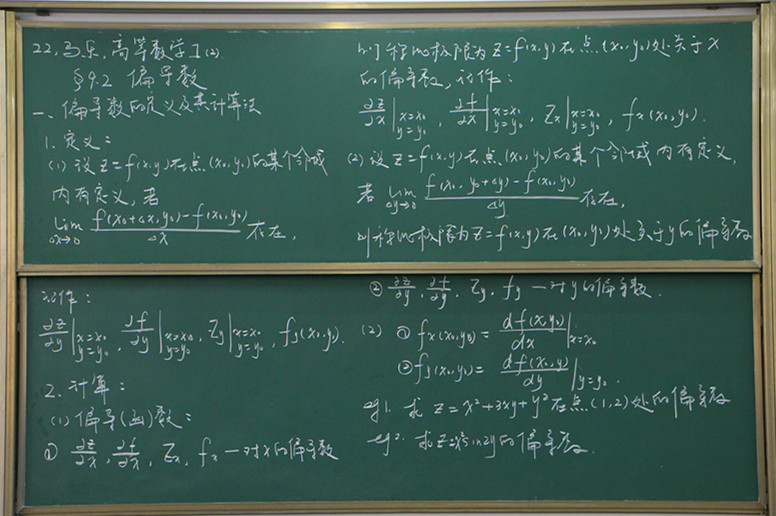 22, 马乐, 高等数学I(2)
§9.2 偏导数
一、偏导数的定义及其计算法
1. 定义：
(1) 设 z=f(x,y) 在点 (x₀,y₀) 的某个邻域
内有定义, 若
lim_{Δx→0} \frac{f(x₀+Δx,y₀)-f(x₀,y₀)}{Δx} 存在,
则称此极限为 z=f(x,y) 在点 (x₀,y₀) 处关于 x
的偏导数, 记作：
\frac{∂z}{∂x}|_{x=x₀ y=y₀}, \frac{∂f}{∂x}|_{x=x₀ y=y₀}, Zx|_{x=x₀ y=y₀}, fx(x₀,y₀).
(2) 设 z=f(x,y) 在点 (x₀,y₀) 的某个邻域内有定义,
若 lim_{Δy→0} \frac{f(x₀,y₀+Δy)-f(x₀,y₀)}{Δy} 存在,
则称此极限为 z=f(x,y) 在 (x₀,y₀) 处关于 y 的偏导数
记作：
\frac{∂z}{∂y}|_{x=x₀ y=y₀}, \frac{∂f}{∂y}|_{x=x₀ y=y₀}, Zy|_{x=x₀ y=y₀}, fy(x₀,y₀).
2. 计算：
(1) 偏导(函)数：
① \frac{∂z}{∂x}, \frac{∂f}{∂x}, Zx, fx 一对 x 的偏导数
② \frac{∂z}{∂y}, \frac{∂f}{∂y}, Zy, fy 一对 y 的偏导数.
(2) ① fx(x₀,y₀) = \frac{df(x,y₀)}{dx}|_{x=x₀}
② fy(x₀,y₀) = \frac{df(x₀,y)}{dy}|_{y=y₀}.
eg1. 求 z=x²+3xy+y² 在点 (1,2) 处的偏导数
eg2. 求 z=x²sin2y 的偏导数.